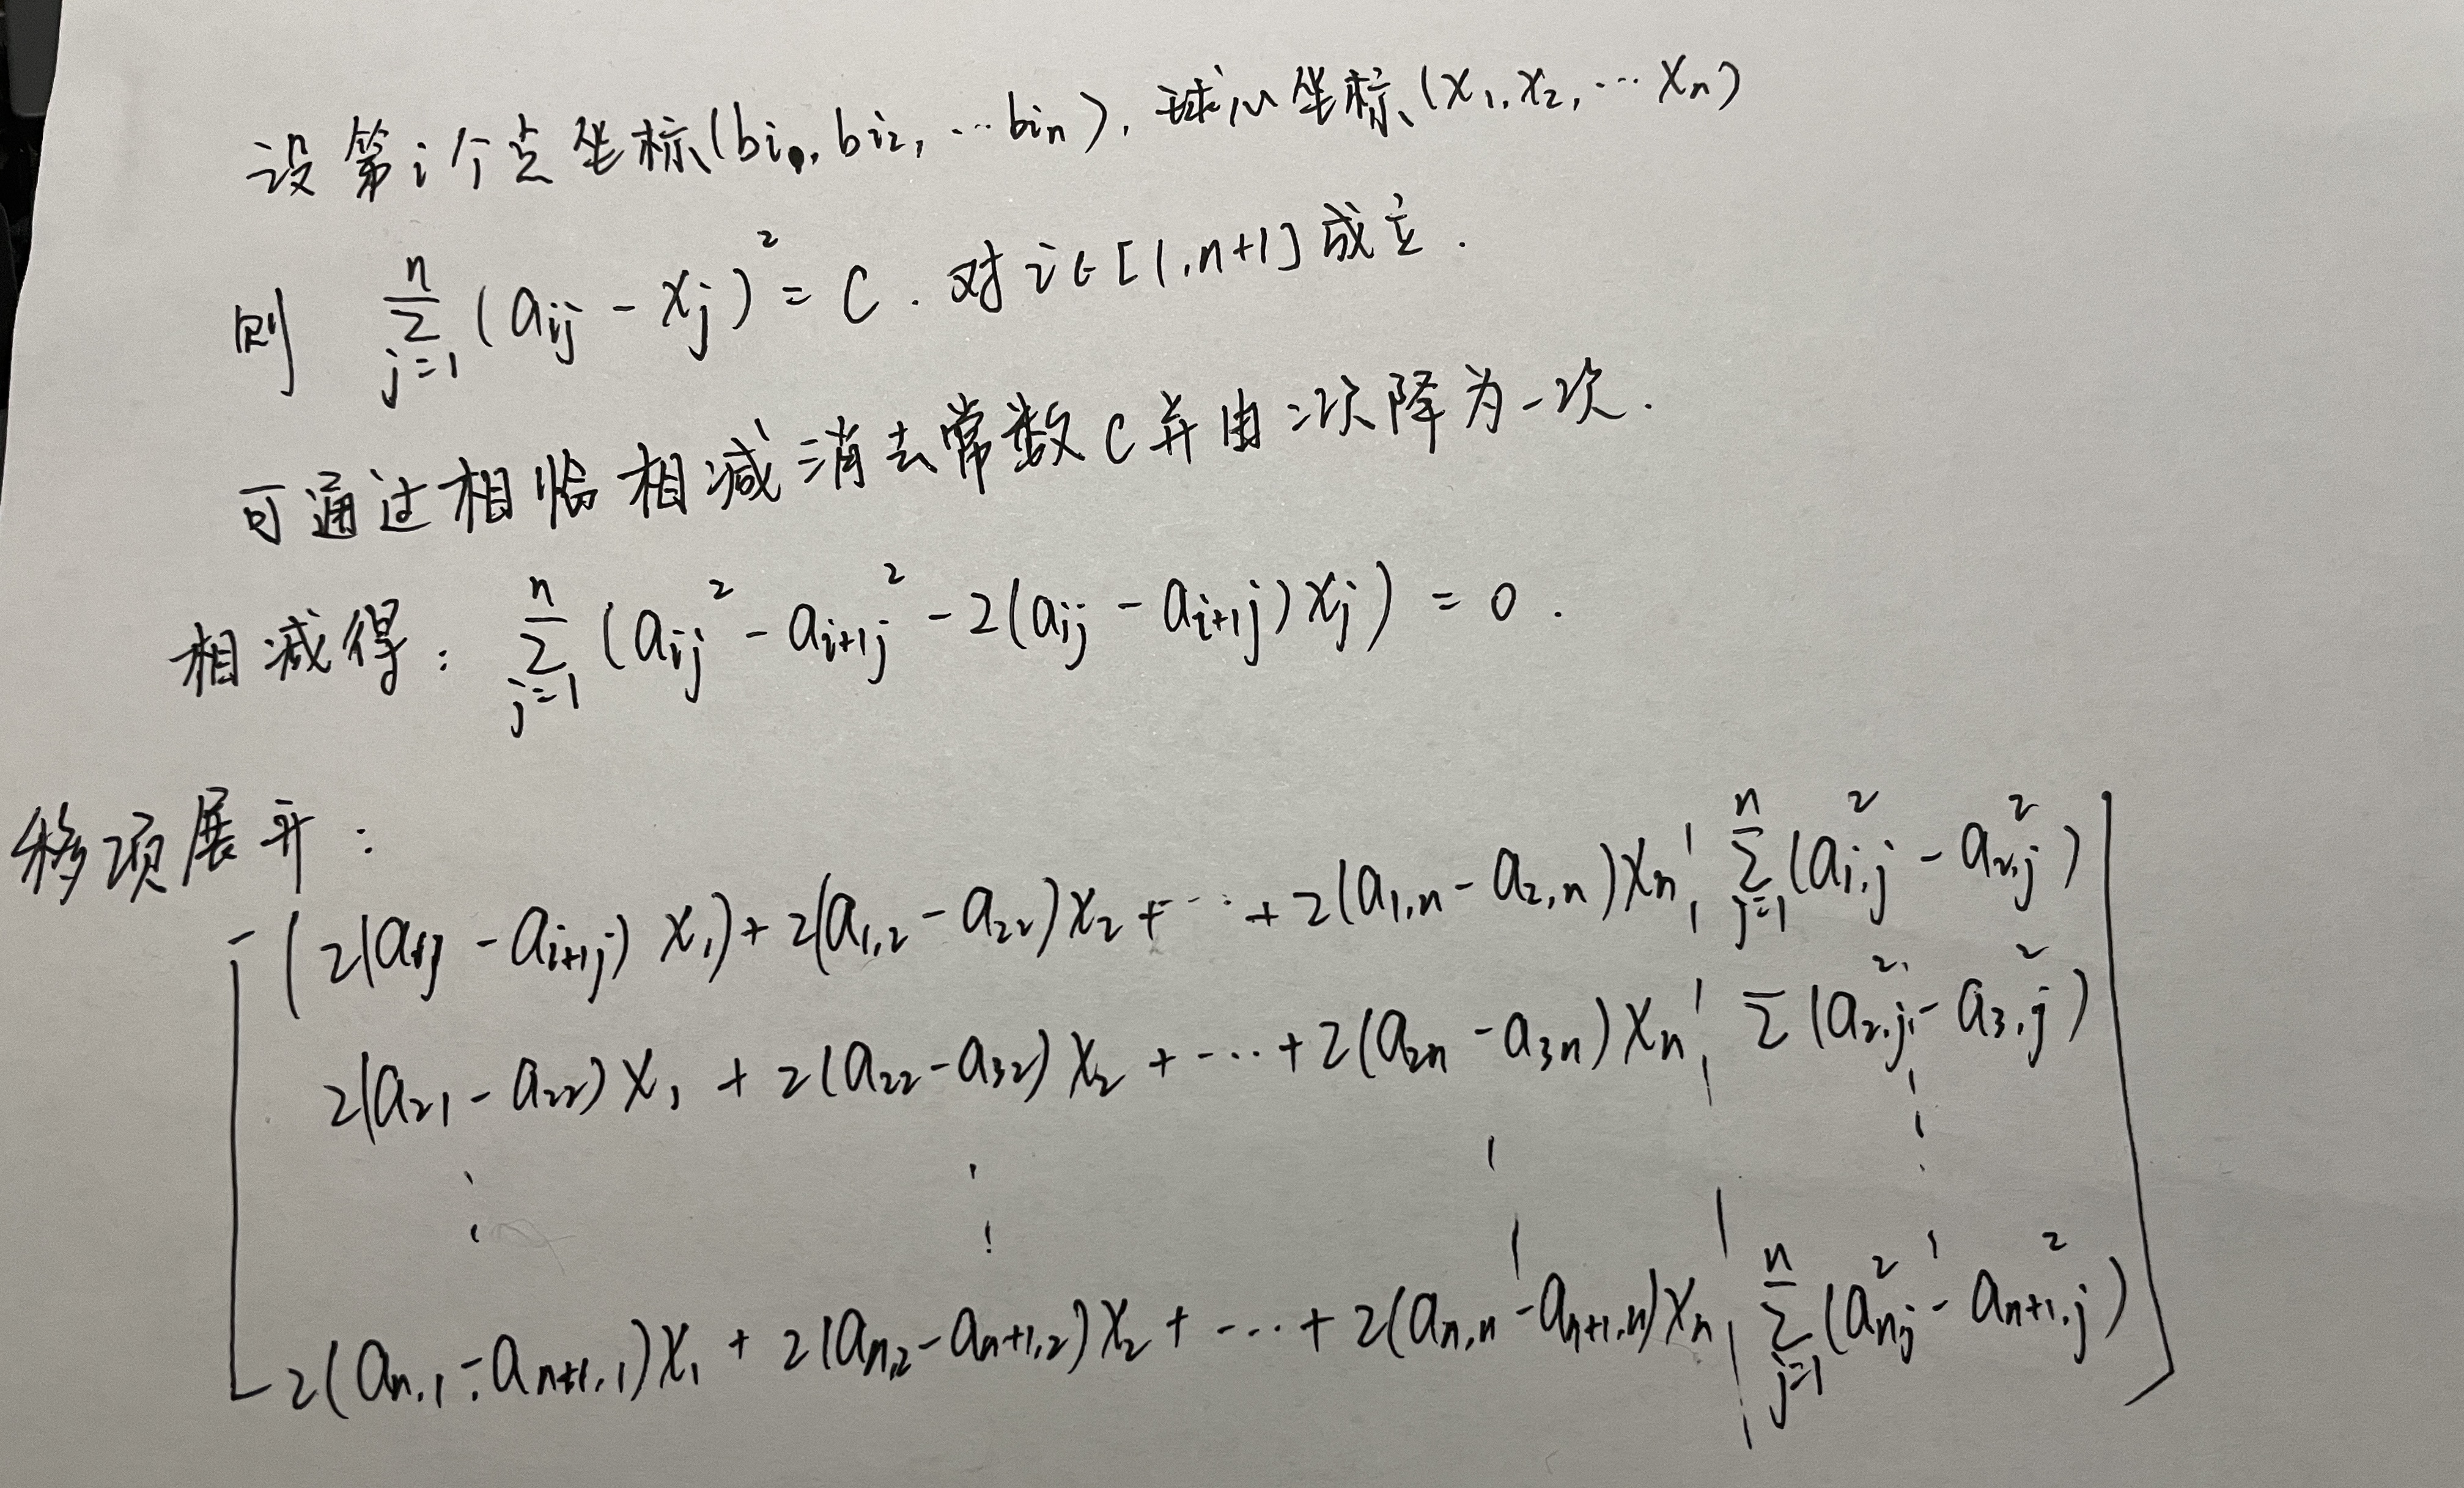 设第i个点坐标(bi₁, bi₂, …bin), 球心坐标(x₁, x₂, …xₙ)
则 ∑_{j=1}^{n} (aᵢⱼ - xⱼ)² = C. 对 i∈[1,n+1] 成立.
可通过相临相减消去常数C并由二次降为一次.
相减得: ∑_{j=1}^{n} (aᵢⱼ² - a_{i+1j}² - 2(aᵢⱼ - a_{i+1j})xⱼ) = 0.
移项展开:
[(2(aᵢⱼ - a_{i+1j})x₁) + 2(a_{1,2} - a_{22})x₂ + … + 2(a_{1,n} - a_{2,n})xₙ | ∑_{j=1}^{n} (a_{i,j}² - a_{2,j}²)
2(a_{21} - a_{22})x₁ + 2(a_{22} - a_{32})x₂ + … + 2(a_{2n} - a_{3n})xₙ | ∑(a_{2,j}² - a_{3,j}²)
⋮ ⋮ ⋮ ⋮
2(a_{n,1} - a_{n+1,1})x₁ + 2(a_{n,2} - a_{n+1,2})x₂ + … + 2(a_{n,n} - a_{n+1,n})xₙ | ∑_{j=1}^{n} (a_{nj}² - a_{n+1,j}²)]